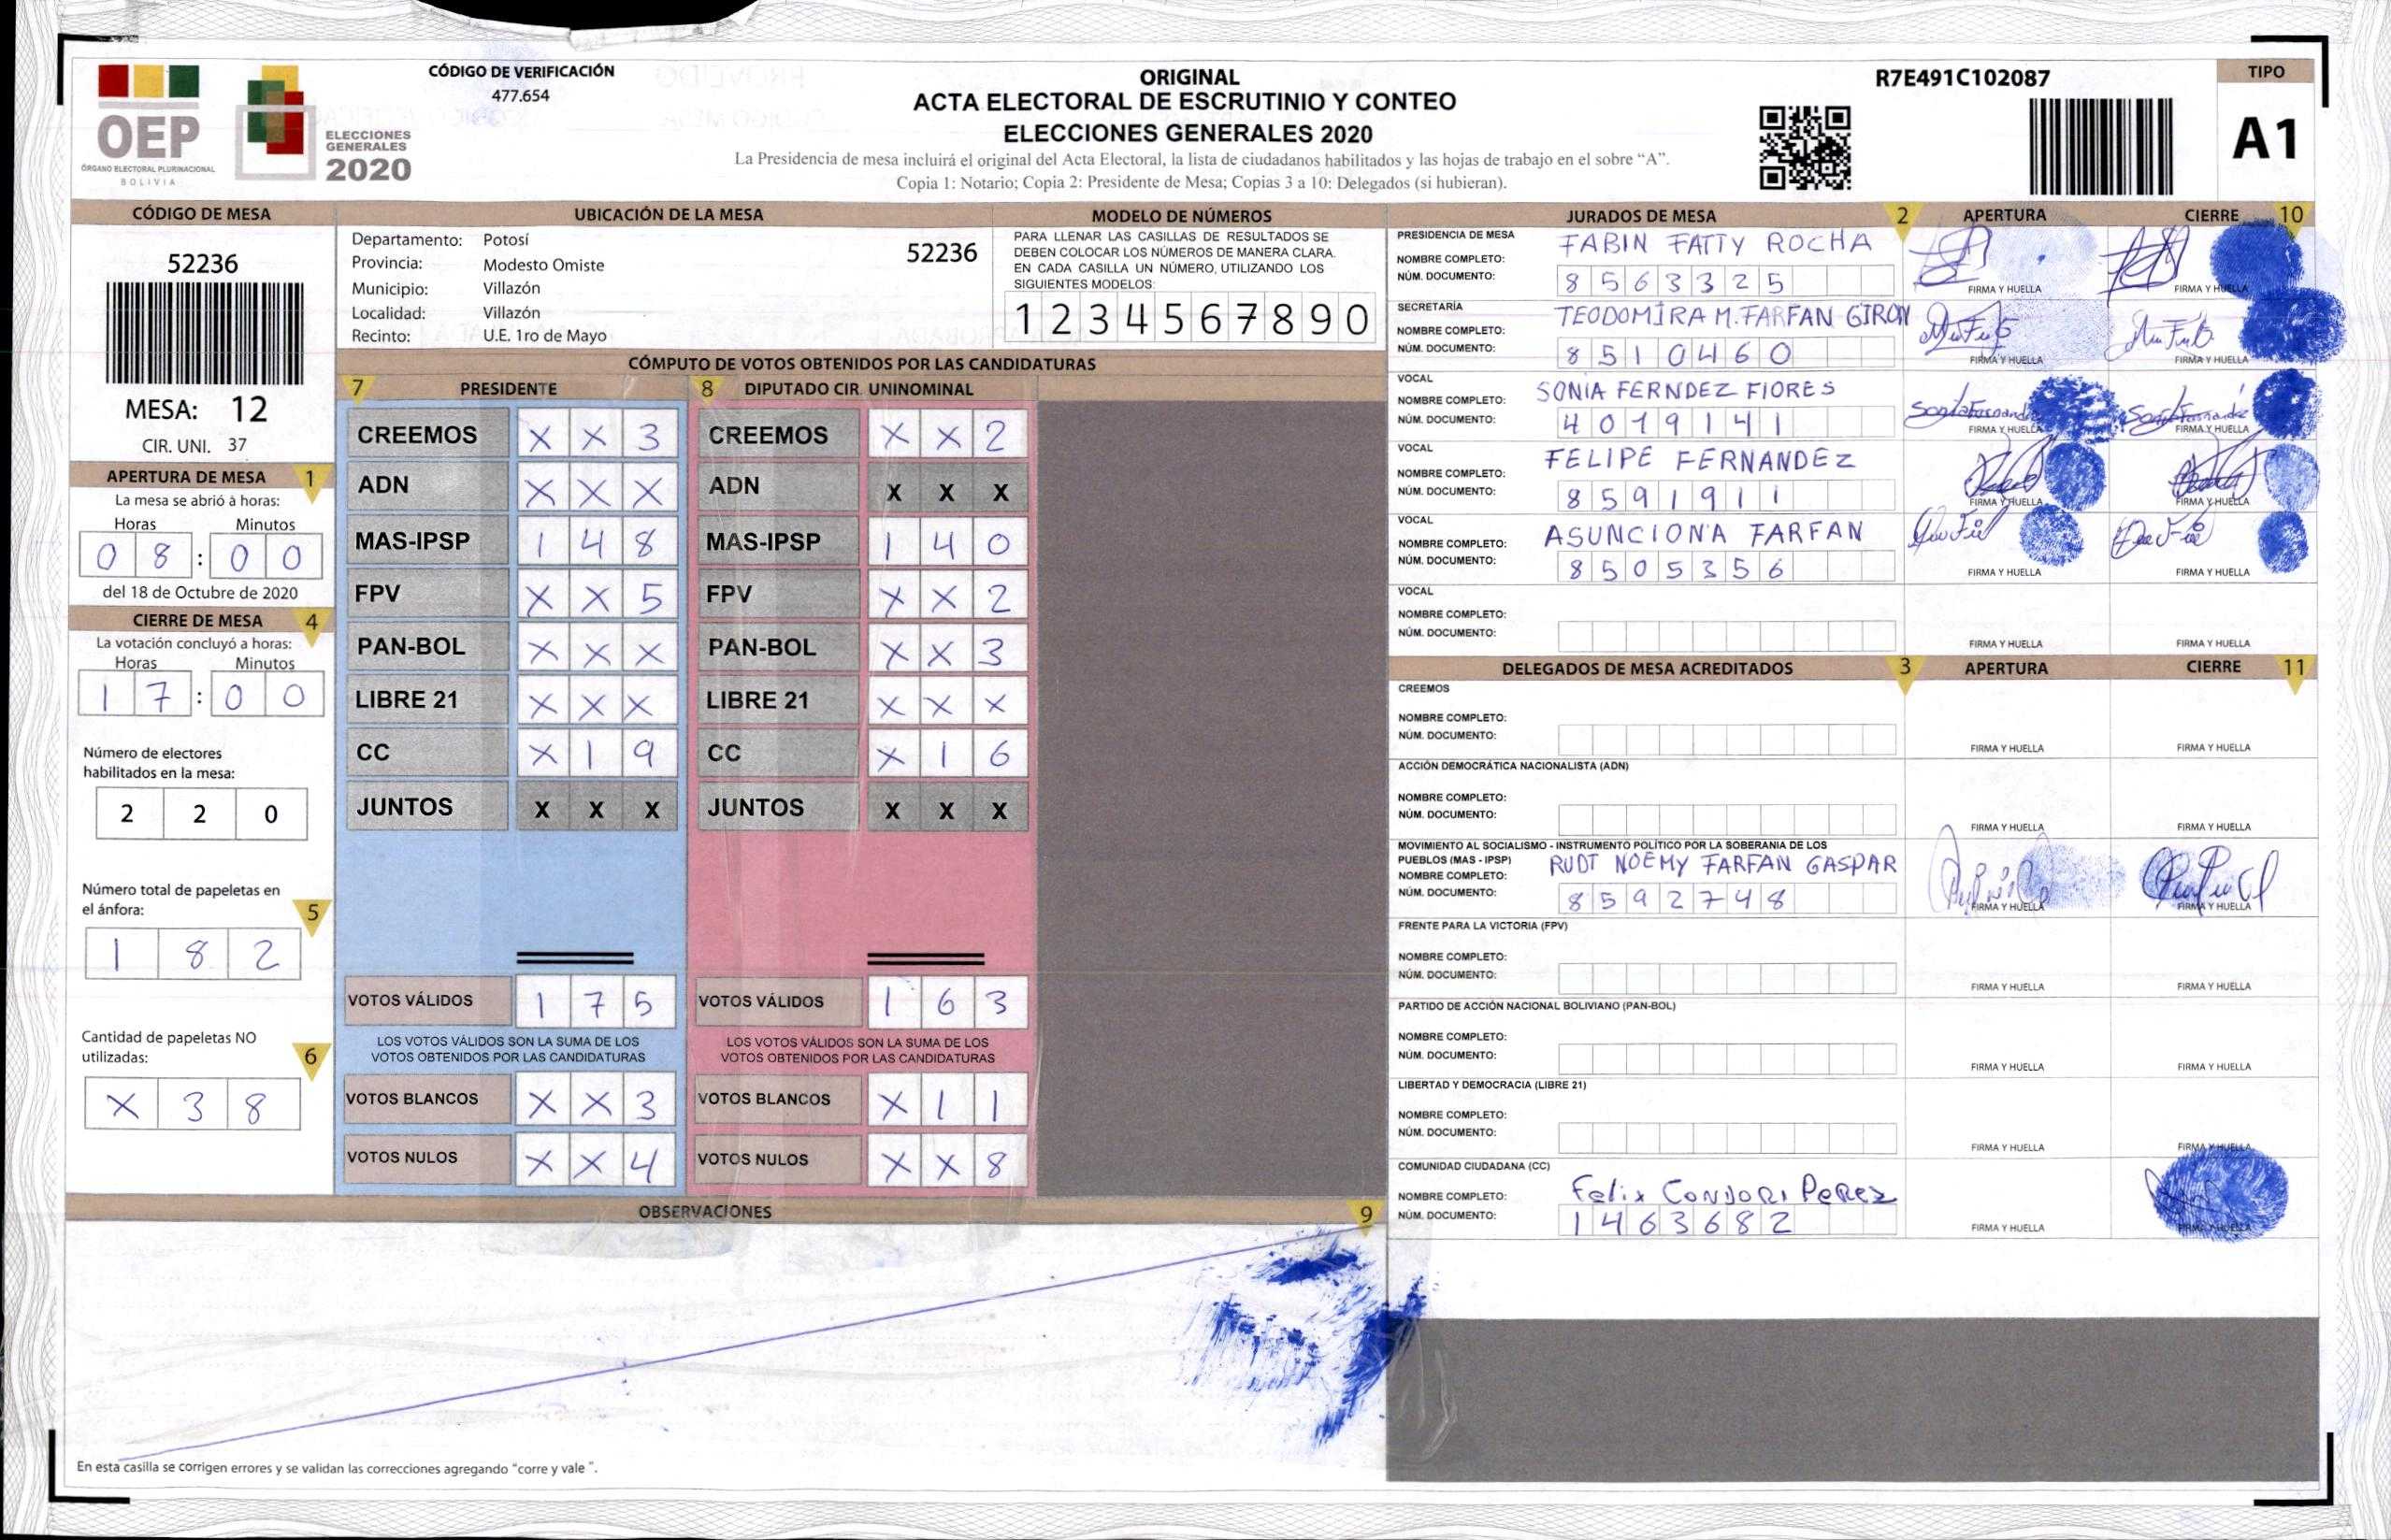 OEP
ÓRGANO ELECTORAL PLURINACIONAL
BOLIVIA
ELECCIONES
GENERALES
2020
CÓDIGO DE VERIFICACIÓN
477.654
ORIGINAL
ACTA ELECTORAL DE ESCRUTINIO Y CONTEO
ELECCIONES GENERALES 2020
La Presidencia de mesa incluirá el original del Acta Electoral, la lista de ciudadanos habilitados y las hojas de trabajo en el sobre “A”.
Copia 1: Notario; Copia 2: Presidente de Mesa; Copias 3 a 10: Delegados (si hubieran).
R7E491C102087
TIPO
A1
CÓDIGO DE MESA
52236
MESA: 12
CIR. UNI. 37
APERTURA DE MESA 1
La mesa se abrió à horas:
Horas Minutos
0 8 : 0 0
del 18 de Octubre de 2020
CIERRE DE MESA 4
La votación concluyó a horas:
Horas Minutos
1 7 : 0 0
Número de electores
habilitados en la mesa:
2 2 0
Número total de papeletas en
el ánfora: 5
1 8 2
Cantidad de papeletas NO
utilizadas: 6
X 3 8
UBICACIÓN DE LA MESA
Departamento: Potosí 52236
Provincia: Modesto Omiste
Municipio: Villazón
Localidad: Villazón
Recinto: U.E. 1ro de Mayo
MODELO DE NÚMEROS
PARA LLENAR LAS CASILLAS DE RESULTADOS SE
DEBEN COLOCAR LOS NÚMEROS DE MANERA CLARA.
EN CADA CASILLA UN NÚMERO, UTILIZANDO LOS
SIGUIENTES MODELOS:
1 2 3 4 5 6 7 8 9 0
CÓMPUTO DE VOTOS OBTENIDOS POR LAS CANDIDATURAS
7 PRESIDENTE 8 DIPUTADO CIR. UNINOMINAL
CREEMOS X X 3 CREEMOS X X 2
ADN X X X ADN X X X
MAS-IPSP 1 4 8 MAS-IPSP 1 4 0
FPV X X 5 FPV X X 2
PAN-BOL X X X PAN-BOL X X 3
LIBRE 21 X X X LIBRE 21 X X X
CC X 1 9 CC X 1 6
JUNTOS X X X JUNTOS X X X
VOTOS VÁLIDOS 1 7 5 VOTOS VÁLIDOS 1 6 3
LOS VOTOS VÁLIDOS SON LA SUMA DE LOS LOS VOTOS VÁLIDOS SON LA SUMA DE LOS
VOTOS OBTENIDOS POR LAS CANDIDATURAS VOTOS OBTENIDOS POR LAS CANDIDATURAS
VOTOS BLANCOS X X 3 VOTOS BLANCOS X 1 1
VOTOS NULOS X X 4 VOTOS NULOS X X 8
OBSERVACIONES 9
En esta casilla se corrigen errores y se validan las correcciones agregando “corre y vale ”.
JURADOS DE MESA 2 APERTURA CIERRE 10
PRESIDENCIA DE MESA
NOMBRE COMPLETO: FABIN FATTY ROCHA
NÚM. DOCUMENTO: 8 5 6 3 3 2 5
FIRMA Y HUELLA FIRMA Y HUELLA
SECRETARÍA
NOMBRE COMPLETO: TEODOMIRA M. FARFAN GIRON
NÚM. DOCUMENTO: 8 5 1 0 4 6 0
FIRMA Y HUELLA FIRMA Y HUELLA
VOCAL
NOMBRE COMPLETO: SONIA FERNDEZ FIORES
NÚM. DOCUMENTO: 4 0 1 9 1 4 1
FIRMA Y HUELLA FIRMA Y HUELLA
VOCAL
NOMBRE COMPLETO: FELIPE FERNANDEZ
NÚM. DOCUMENTO: 8 5 9 1 9 1 1
FIRMA Y HUELLA FIRMA Y HUELLA
VOCAL
NOMBRE COMPLETO: ASUNCIONA FARFAN
NÚM. DOCUMENTO: 8 5 0 5 3 5 6
FIRMA Y HUELLA FIRMA Y HUELLA
VOCAL
NOMBRE COMPLETO:
NÚM. DOCUMENTO:
FIRMA Y HUELLA FIRMA Y HUELLA
DELEGADOS DE MESA ACREDITADOS 3 APERTURA CIERRE 11
CREEMOS
NOMBRE COMPLETO:
NÚM. DOCUMENTO:
FIRMA Y HUELLA FIRMA Y HUELLA
ACCIÓN DEMOCRÁTICA NACIONALISTA (ADN)
NOMBRE COMPLETO:
NÚM. DOCUMENTO:
FIRMA Y HUELLA FIRMA Y HUELLA
MOVIMIENTO AL SOCIALISMO - INSTRUMENTO POLÍTICO POR LA SOBERANIA DE LOS
PUEBLOS (MAS - IPSP)
NOMBRE COMPLETO: RUDT NOEMY FARFAN GASPAR
NÚM. DOCUMENTO: 8 5 9 2 7 4 8
FIRMA Y HUELLA FIRMA Y HUELLA
FRENTE PARA LA VICTORIA (FPV)
NOMBRE COMPLETO:
NÚM. DOCUMENTO:
FIRMA Y HUELLA FIRMA Y HUELLA
PARTIDO DE ACCIÓN NACIONAL BOLIVIANO (PAN-BOL)
NOMBRE COMPLETO:
NÚM. DOCUMENTO:
FIRMA Y HUELLA FIRMA Y HUELLA
LIBERTAD Y DEMOCRACIA (LIBRE 21)
NOMBRE COMPLETO:
NÚM. DOCUMENTO:
FIRMA Y HUELLA FIRMA Y HUELLA
COMUNIDAD CIUDADANA (CC)
NOMBRE COMPLETO: Felix CONDORI PeRez
NÚM. DOCUMENTO: 1 4 6 3 6 8 2
FIRMA Y HUELLA FIRMA Y HUELLA